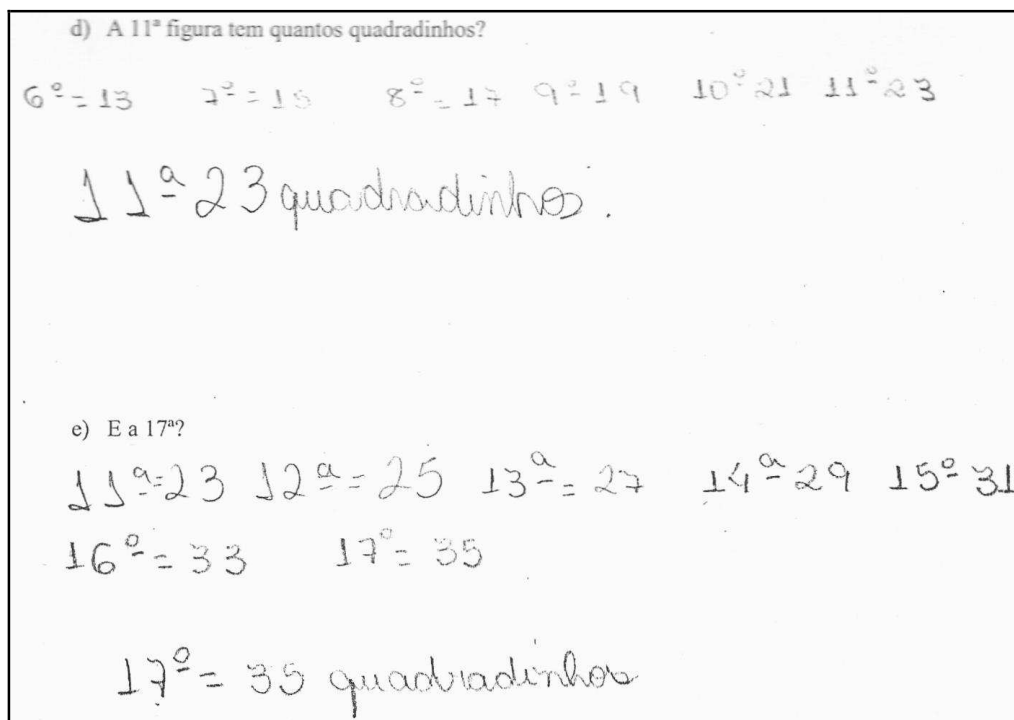 d) A 11ª figura tem quantos quadradinhos?
6º = 13 7º = 15 8º = 17 9º 19 10º 21 11º 23
11ª 23 quadradinhos.
e) E a 17ª?
11ª = 23 12ª = 25 13ª = 27 14ª 29 15º 31
16º = 33 17º = 35
17º = 35 quadradinhos